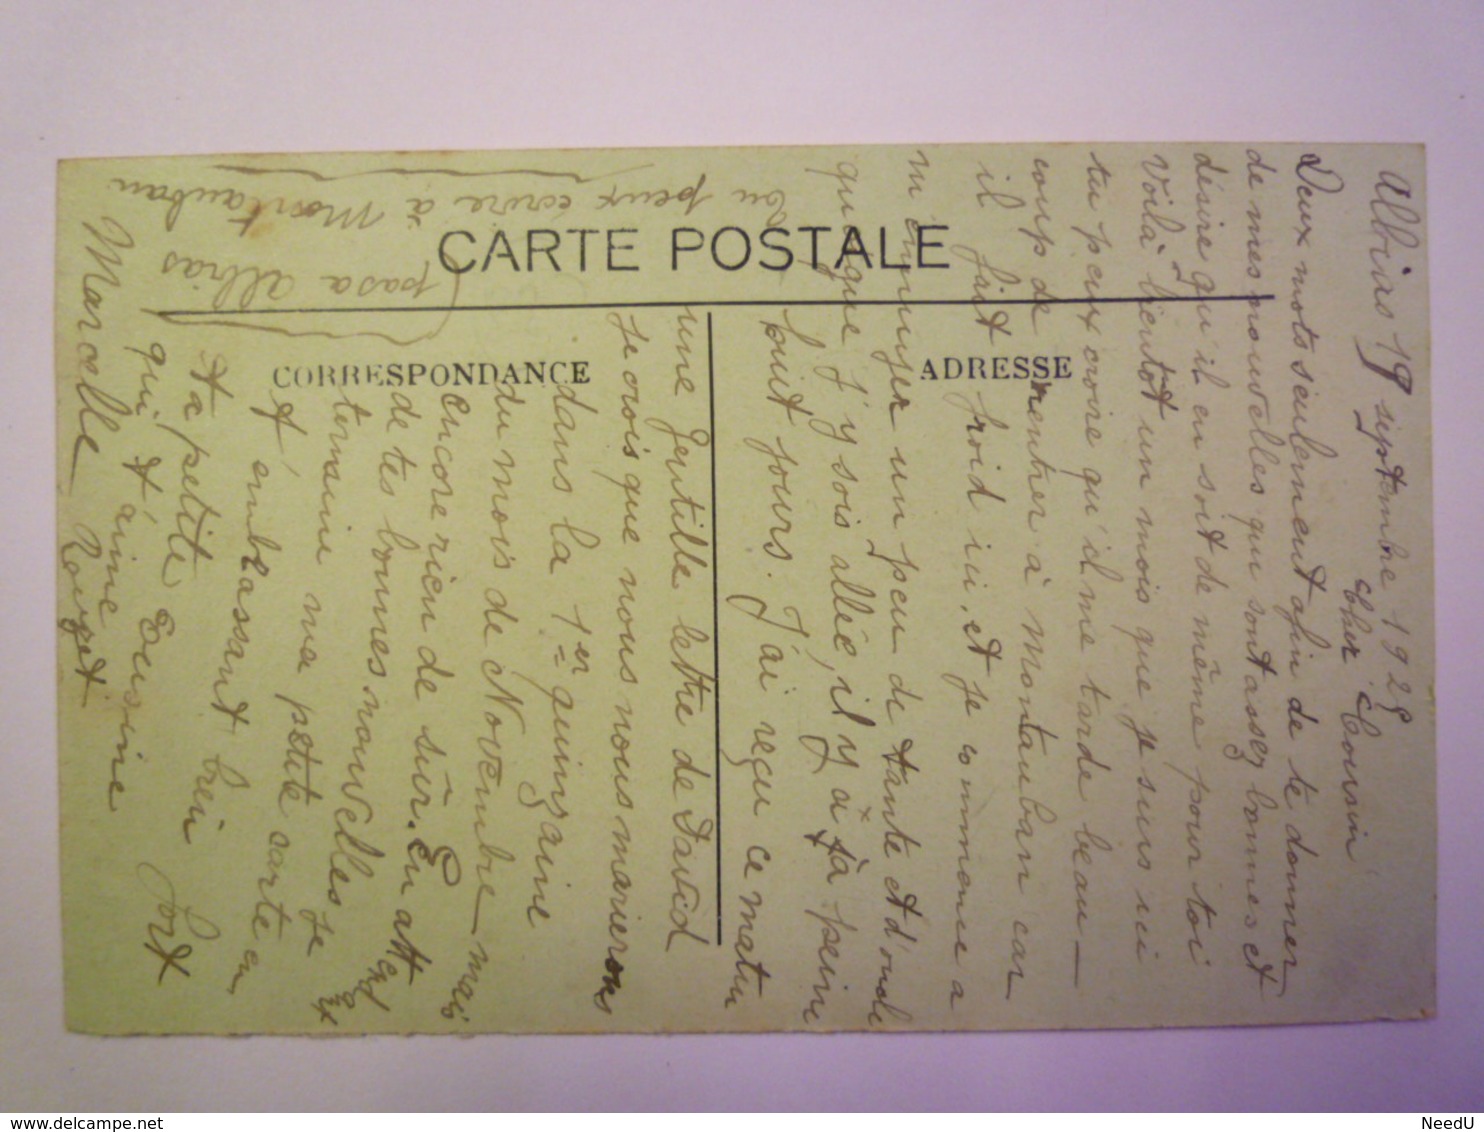 CARTE POSTALE
CORRESPONDANCE
ADRESSE
Albias 19 septembre 1929
Cher Cousin
Deux mots seulement afin de te donner
de mes nouvelles qui sont assez bonnes et
désire qu'il en soit de même pour toi
Voilà bientôt un mois que je suis ici
tu peux croire qu'il me tarde beau-
coup de rentrer à Montauban car
il fait froid ici. et je commence a
m'ennuyer un peu de tante et d'oncle
quoique j'y sois allée, il y a à peine
huit jours. J'ai reçu ce matin
une gentille lettre de David
Je crois que nous nous marierons
dans la 1er quinzaine
du mois de Novembre mais
encore rien de sûr. En att end
de tes bonnes nouvelles Je
termine ma petite carte en
t'embrassant bien fort
Ta petite Cousine
qui t'aime
Marcelle Rouget
tu peux écrire à Montauban
pas a albias
NeedU